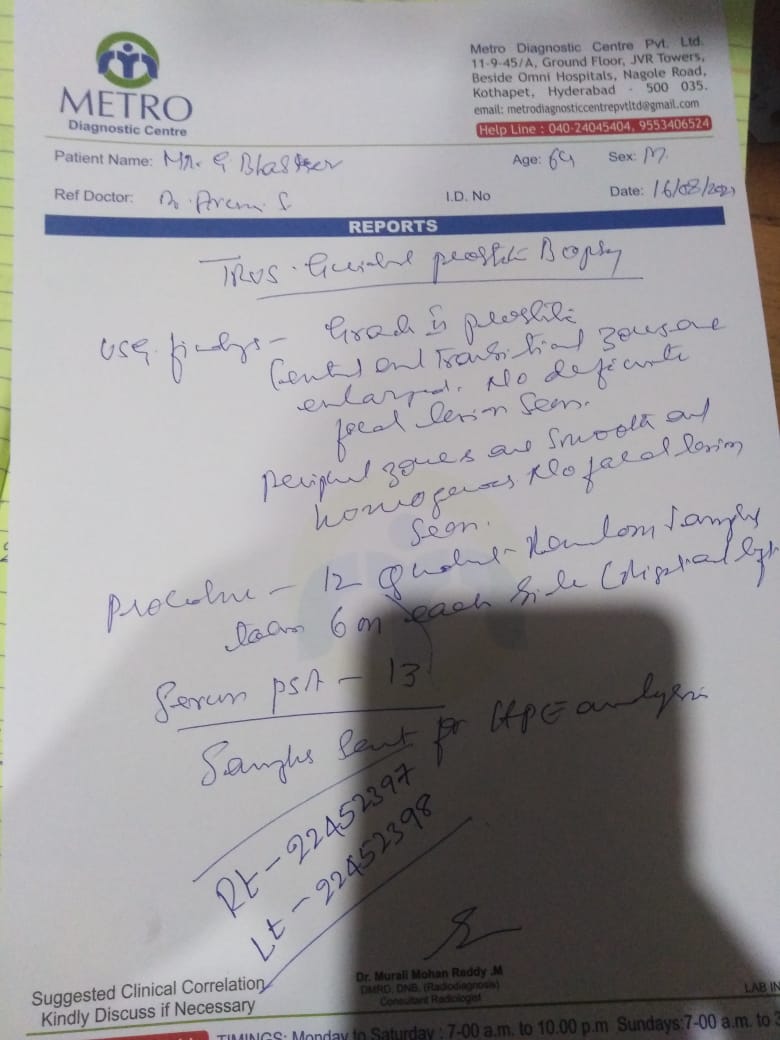 METRO
Diagnostic Centre
Metro Diagnostic Centre Pvt. Ltd.
11-9-45/A, Ground Floor, JVR Towers,
Beside Omni Hospitals, Nagole Road,
Kothapet, Hyderabad - 500 035.
email: metrodiagnosticcentrepvtltd@gmail.com
Help Line : 040-24045404, 9553406524
Patient Name: Mr. G Bhasker Age: 64 Sex: M.
Ref Doctor: Dr. I.D. No Date: 16/08/2021
REPORTS
TRUS. Guided prostate Biopsy
USG. findings - Grade prostate
Central and Transitional zones are
enlarged. No definite
focal lesion seen.
Peripheral zones are smooth and
homogenous No focal lesion
seen.
Procedure - 12 Random samples
taken 6 on each side
Serum PSA - 13
Samples sent for HPE analysis
Rt - 22452397
Lt - 22452398
Dr. Murali Mohan Reddy .M
DMRD, DNB, (Radiodiagnosis)
Consultant Radiologist
Suggested Clinical Correlation
Kindly Discuss if Necessary
LAB IN
TIMINGS: Monday to Saturday : 7-00 a.m. to 10.00 p.m Sundays:7-00 a.m. to